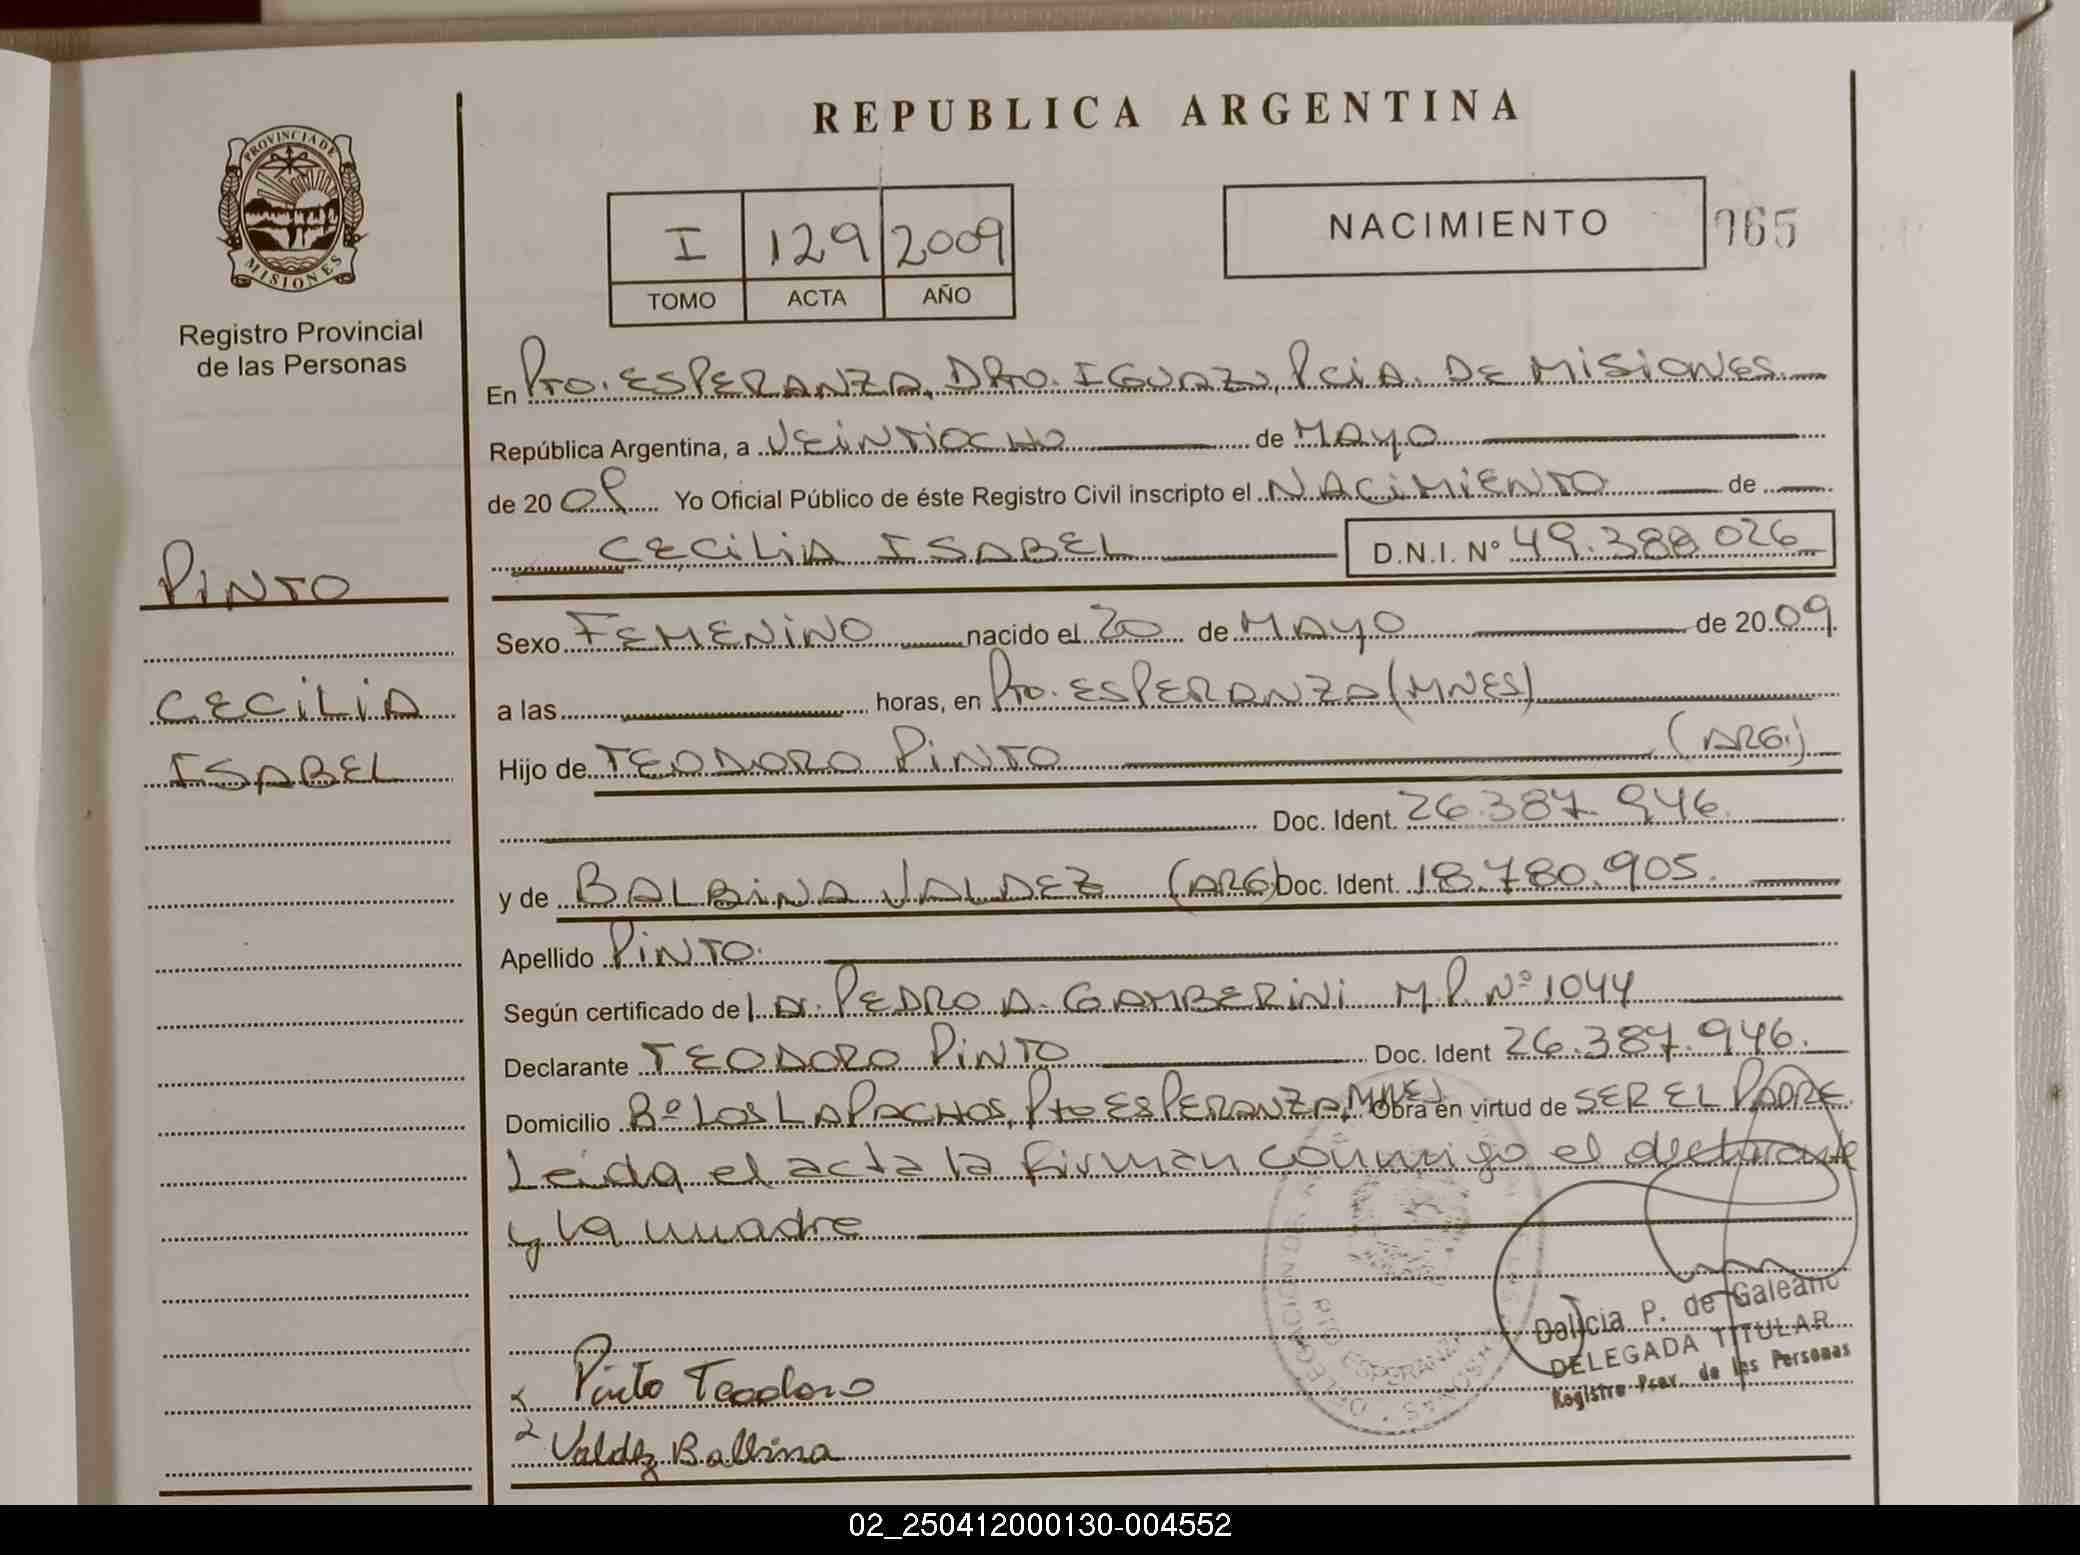 REPUBLICA ARGENTINA
PROVINCIA DE
MISIONES
Registro Provincial
de las Personas
I 129 2009
TOMO ACTA AÑO
NACIMIENTO
965
En Pto. ESPERANZA, DPto. IGUAZU, PCiA. DE MiSiONES.
República Argentina, a VEiNTiOCHO de MAYO
de 20 09 Yo Oficial Público de éste Registro Civil inscripto el NACiMiENTO de
CECiLiA ISABEL D.N.I. N° 49.388.026
PiNTO
CECiLiA
ISABEL
Sexo FEMENiNO nacido el 20 de MAYO de 20 09
a las horas, en Pto. ESPERANZA (MNES)
Hijo de TEODORO PiNTO (ARG.)
Doc. Ident. 26.387.946.
y de BALBiNA VALDEZ (ARG) Doc. Ident. 18.780.905.
Apellido PiNTO.
Según certificado de l Dr. PEDRO A. GAMBERiNi M.P. Nº 1044
Declarante TEODORO PiNTO Doc. Ident 26.387.946.
Domicilio Bº LOS LAPACHOS, Pto ESPERANZA, MNES Obra en virtud de SER EL PADRE.
Leida el acta la firman conmigo el declarante
y la madre
PTO ESPERANZA
Pinto Teodoro
Valdez Balbina
Dolicia P. de Galeano
DELEGADA TITULAR
Registro Prov. de las Personas
02_250412000130-004552